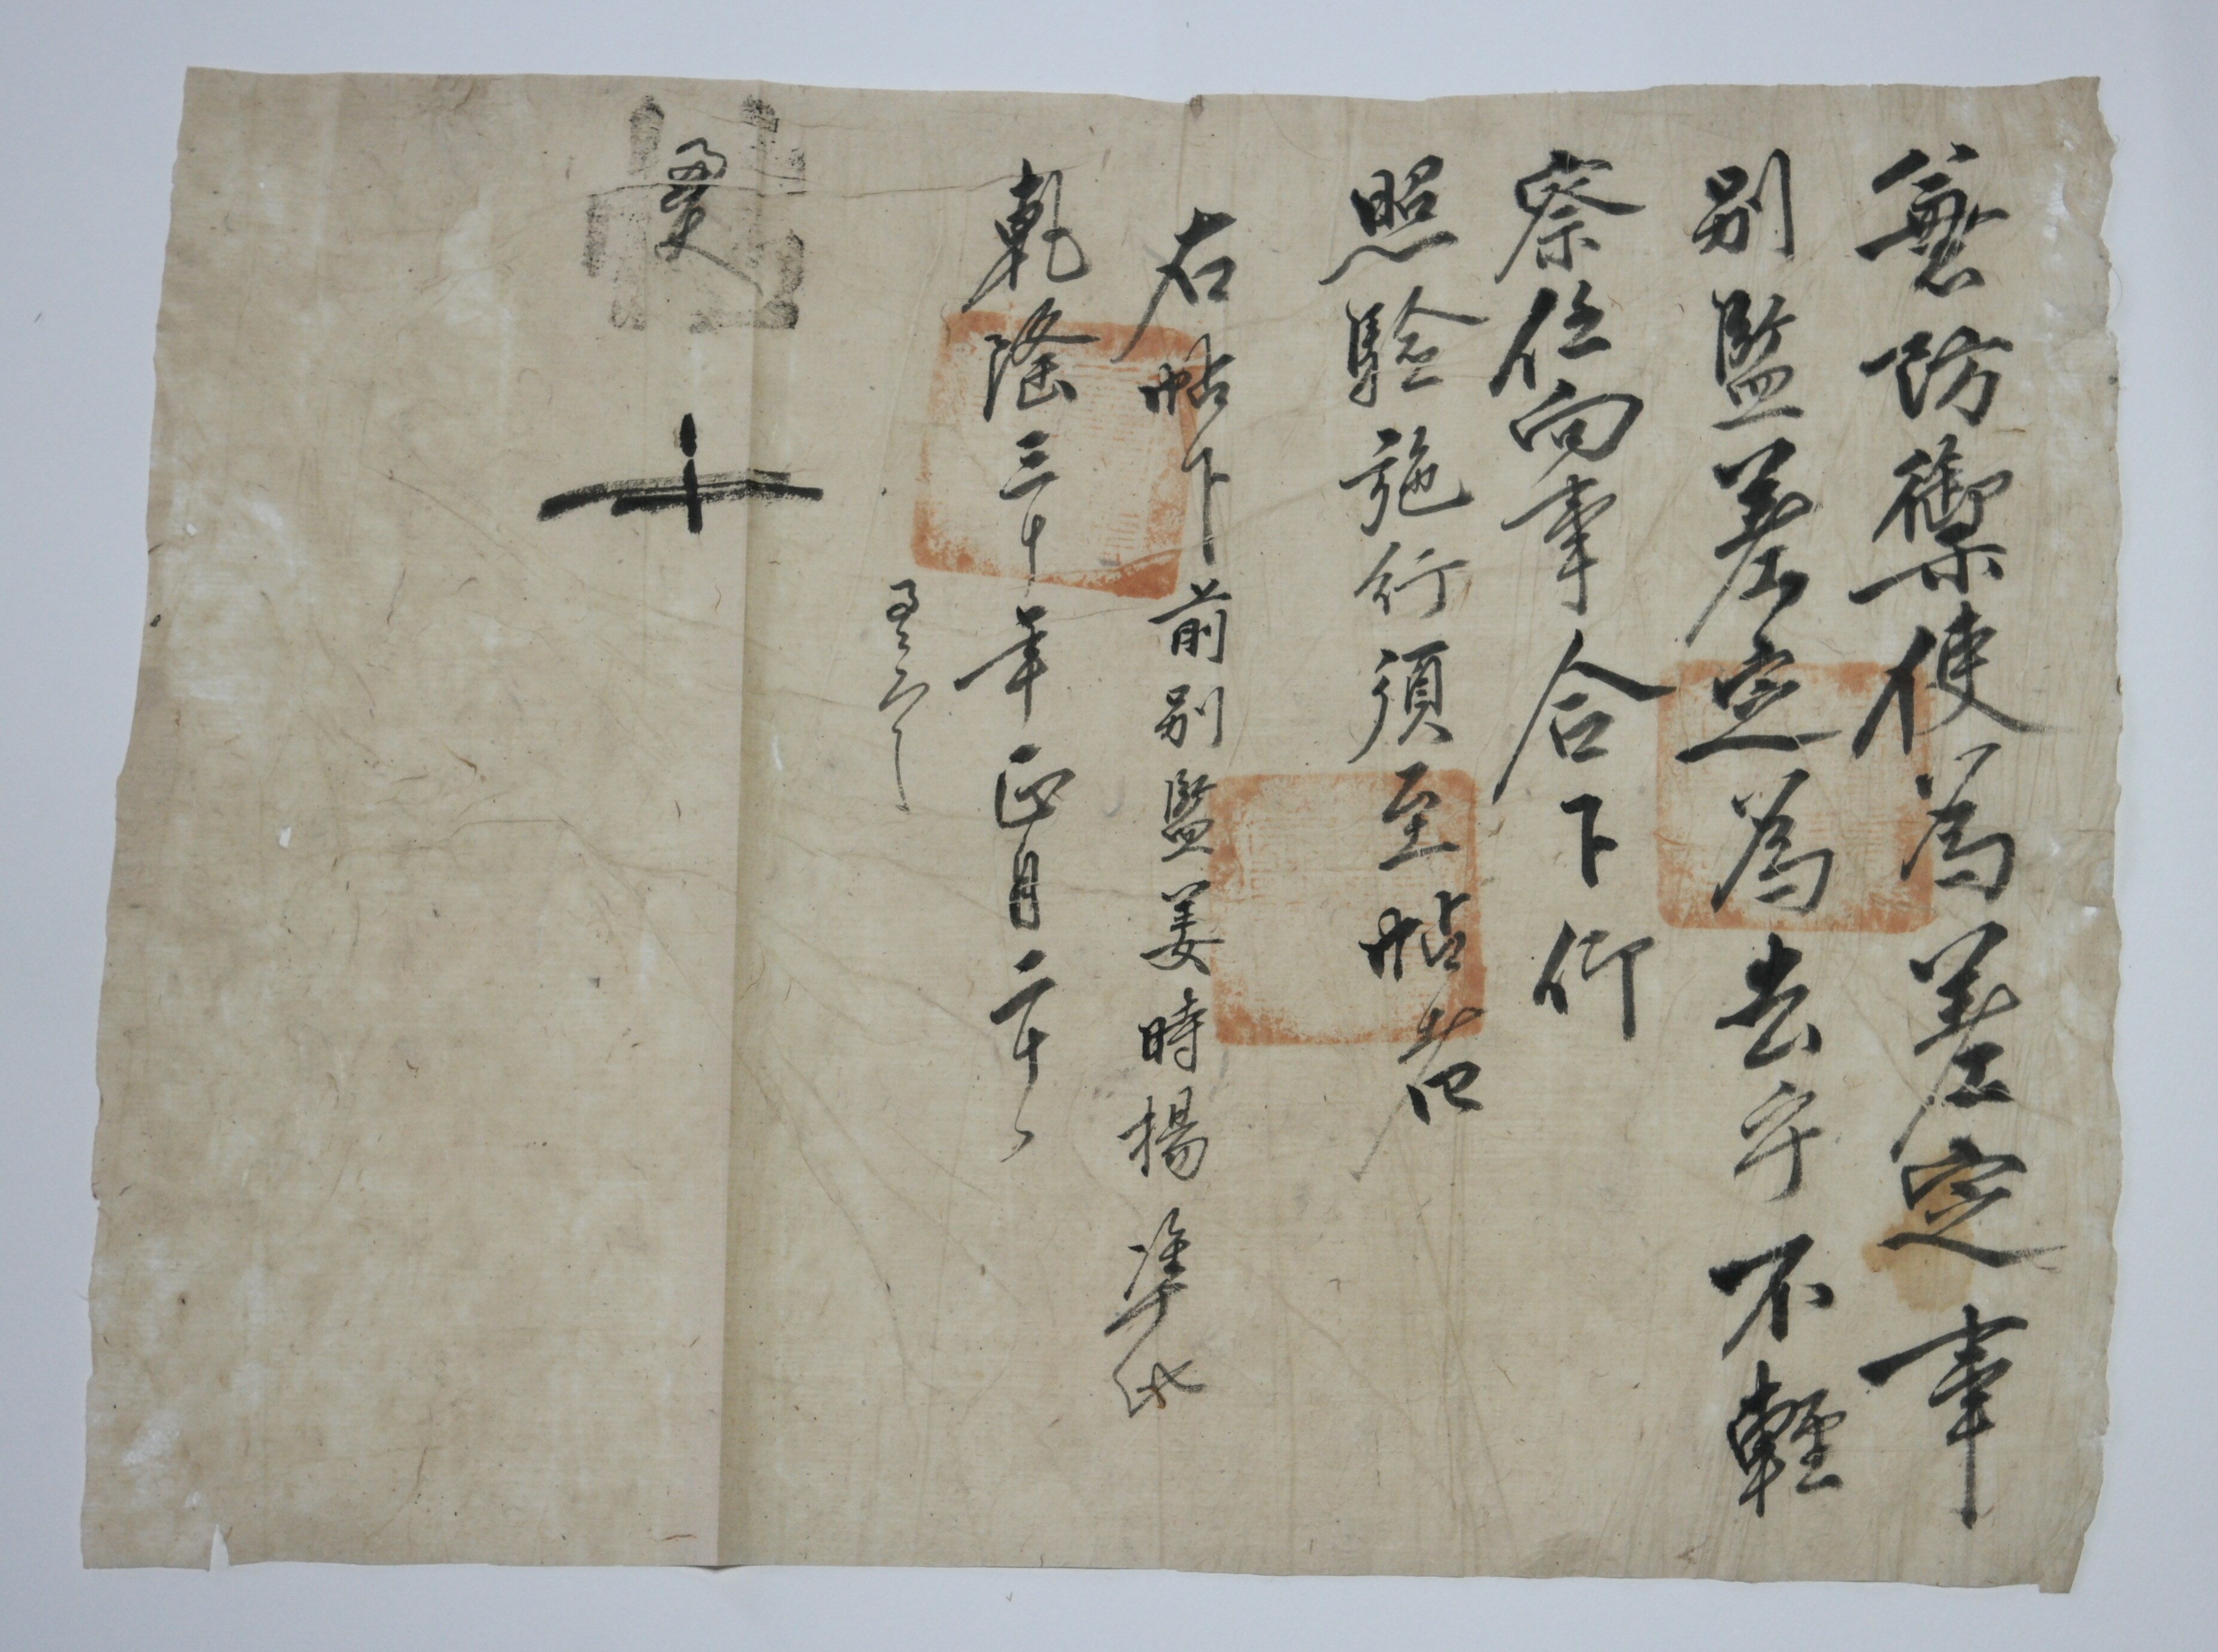 兼防禦使為差定事
別監差定為去乎不輕
察任向事合下仰
照驗施行須至帖者
右帖下前別監姜時揚準此
乾隆三十年正月二十
差定
使